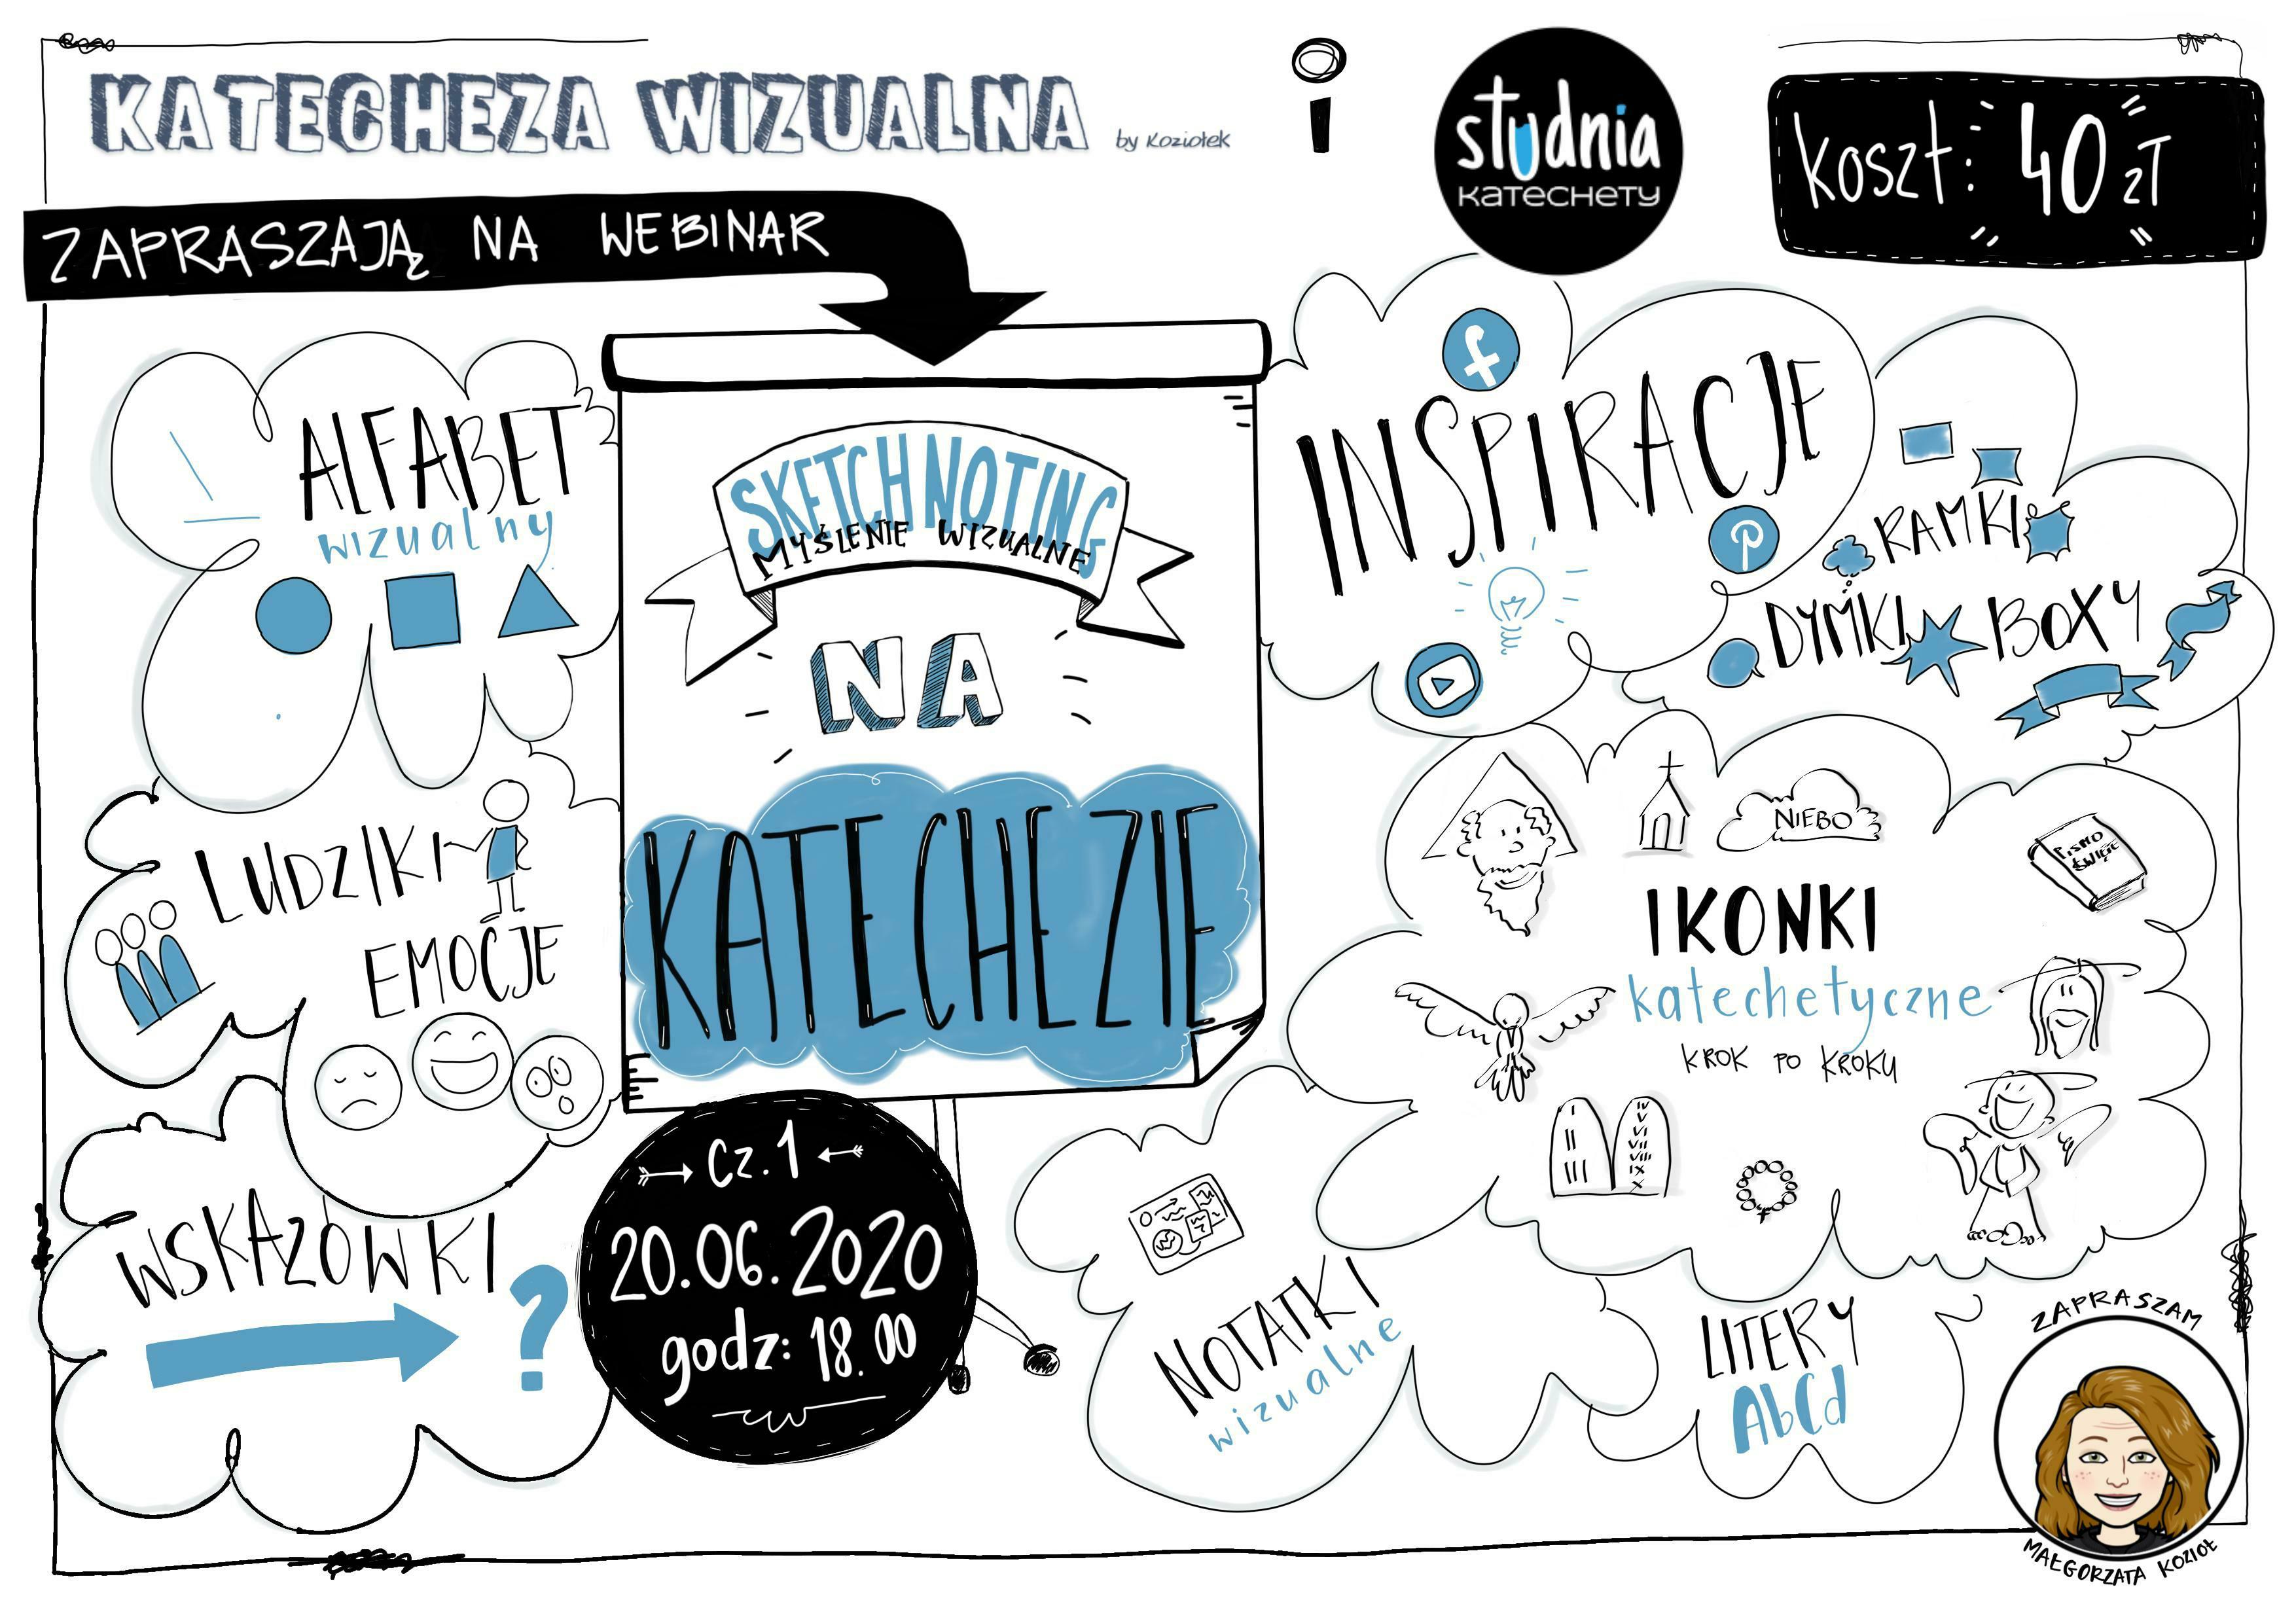 KATECHEZA WIZUALNA by Koziołek
i
studnia
KATECHETY
koszt: 40 zł
ZAPRASZAJĄ NA WEBINAR
ALFABET
wizualny
SKETCHNOTING
MYŚLENIE WIZUALNE
NA
KATECHEZIE
INSPIRACJE
RAMKI
DYMKI BOXY
LUDZIKI
EMOCJE
NIEBO
PISMO
ŚWIĘTE
IKONKI
katechetyczne
KROK PO KROKU
I
II
III
IV
V
VI
VII
VIII
IX
X
WSKAZÓWKI
?
Cz. 1
20.06.2020
godz: 18.00
NOTATKI
wizualne
LITERY
AbCd
ZAPRASZAM
MAŁGORZATA KOZIOŁ